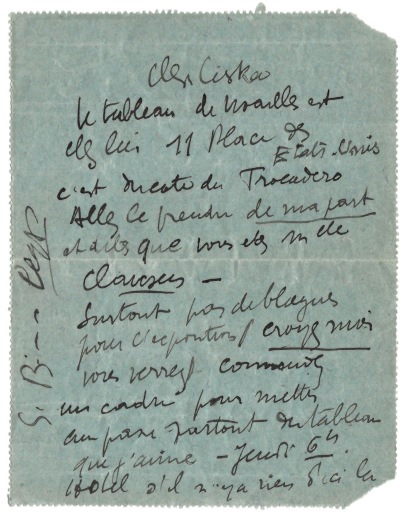 Cher Ciska
le tableau de Noailles est
chez lui 11 Place des
Etats-Unis
c'est du coté du Trocadero
Allez le prendre de ma part
et dites que vous etes
Surtout pas de blagues
pour l'exposition croyez moi
vous verrez commandez
un cadre pour mettre
passe partout du tableau
que j'aime - Jeudi 6h
Hotel s'il n'y a rien d'ici la